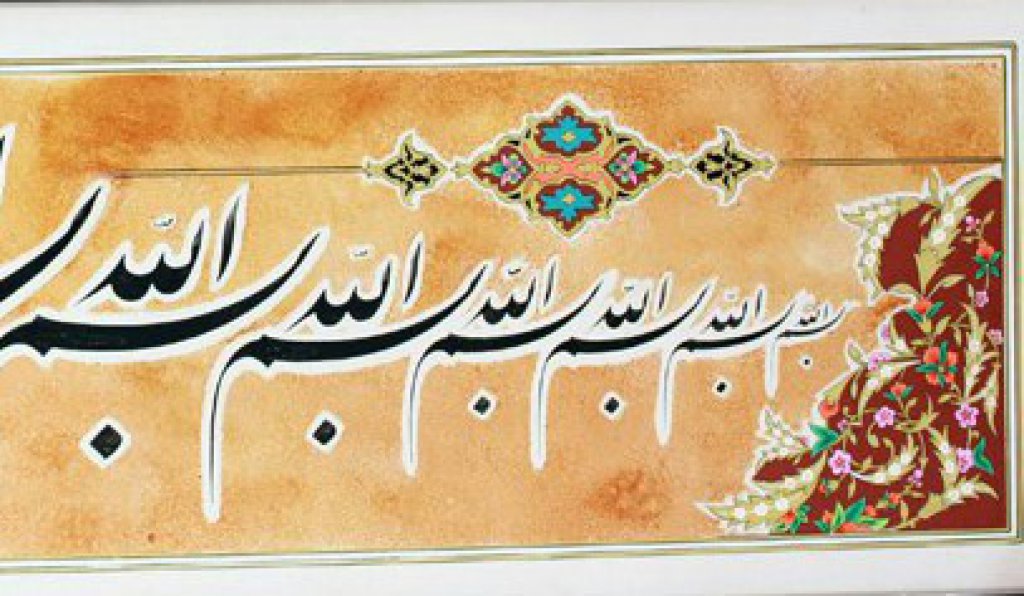 بسم الله بسم الله بسم الله بسم الله بسم الله بسم الله